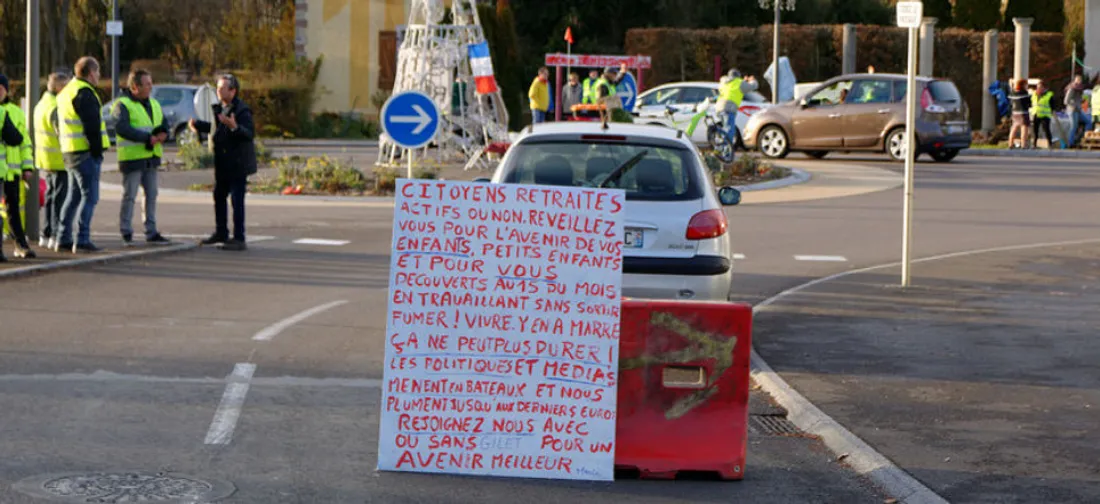 CITOYENS RETRAITES
ACTIFS OU NON. REVEILLEZ
VOUS POUR L'AVENIR DE VOS
ENFANTS, PETITS ENFANTS
ET POUR VOUS
DECOUVERTS AU 15 DU MOIS
EN TRAVAILLANT SANS SORTIR
FUMER ! VIVRE. Y EN A MARRE
ÇA NE PEUT PLUS DURER !
LES POLITIQUES ET MEDIAS
MENENT EN BATEAUX ET NOUS
PLUMENT JUSQU'AUX DERNIERS EUROS
REJOIGNEZ NOUS AVEC
OU SANS GILET POUR UN
AVENIR MEILLEUR